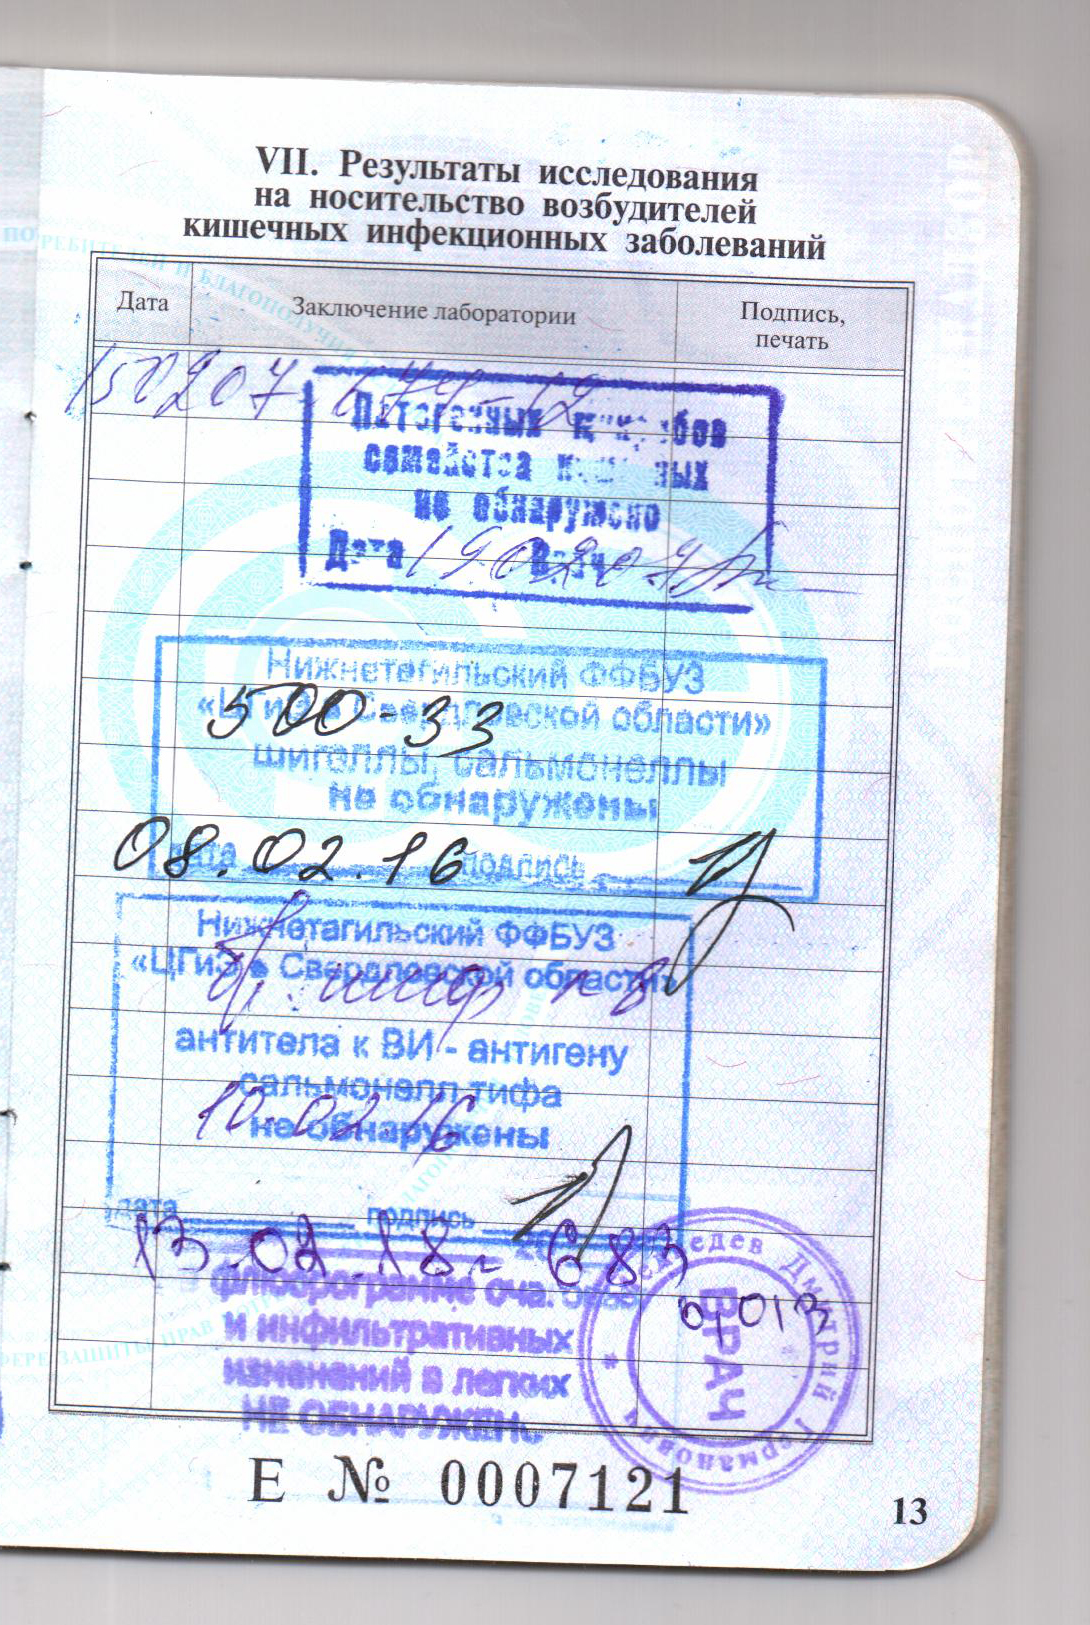 VII. Результаты исследования
на носительство возбудителей
кишечных инфекционных заболеваний
Дата Заключение лаборатории Подпись,
печать
150207 679-12
Патогенных
семейства
не обнаружено
Дата 190207 Врач
Нижнетагильский ФФБУЗ
«ЦГиЭ в Свердловской области»
500-33
шигеллы, сальмонеллы
не обнаружены
дата 08.02.16 подпись
Нижнетагильский ФФБУЗ
«ЦГиЭ в Свердловской области»
антитела к ВИ - антигену
сальмонелл тифа
10.02.16
не обнаружены
дата подпись
13.02.18г 683
флюорограмме
и инфильтративных
изменений в легких
НЕ ОБНАРУЖЕНО
Дмитрий Германович
ВРАЧ
Е № 0007121
13